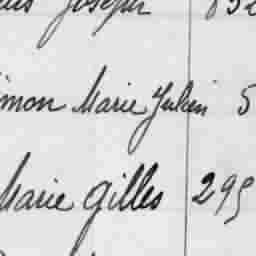 Joseph
imon Marie Julien 5
Marie Gilles 295